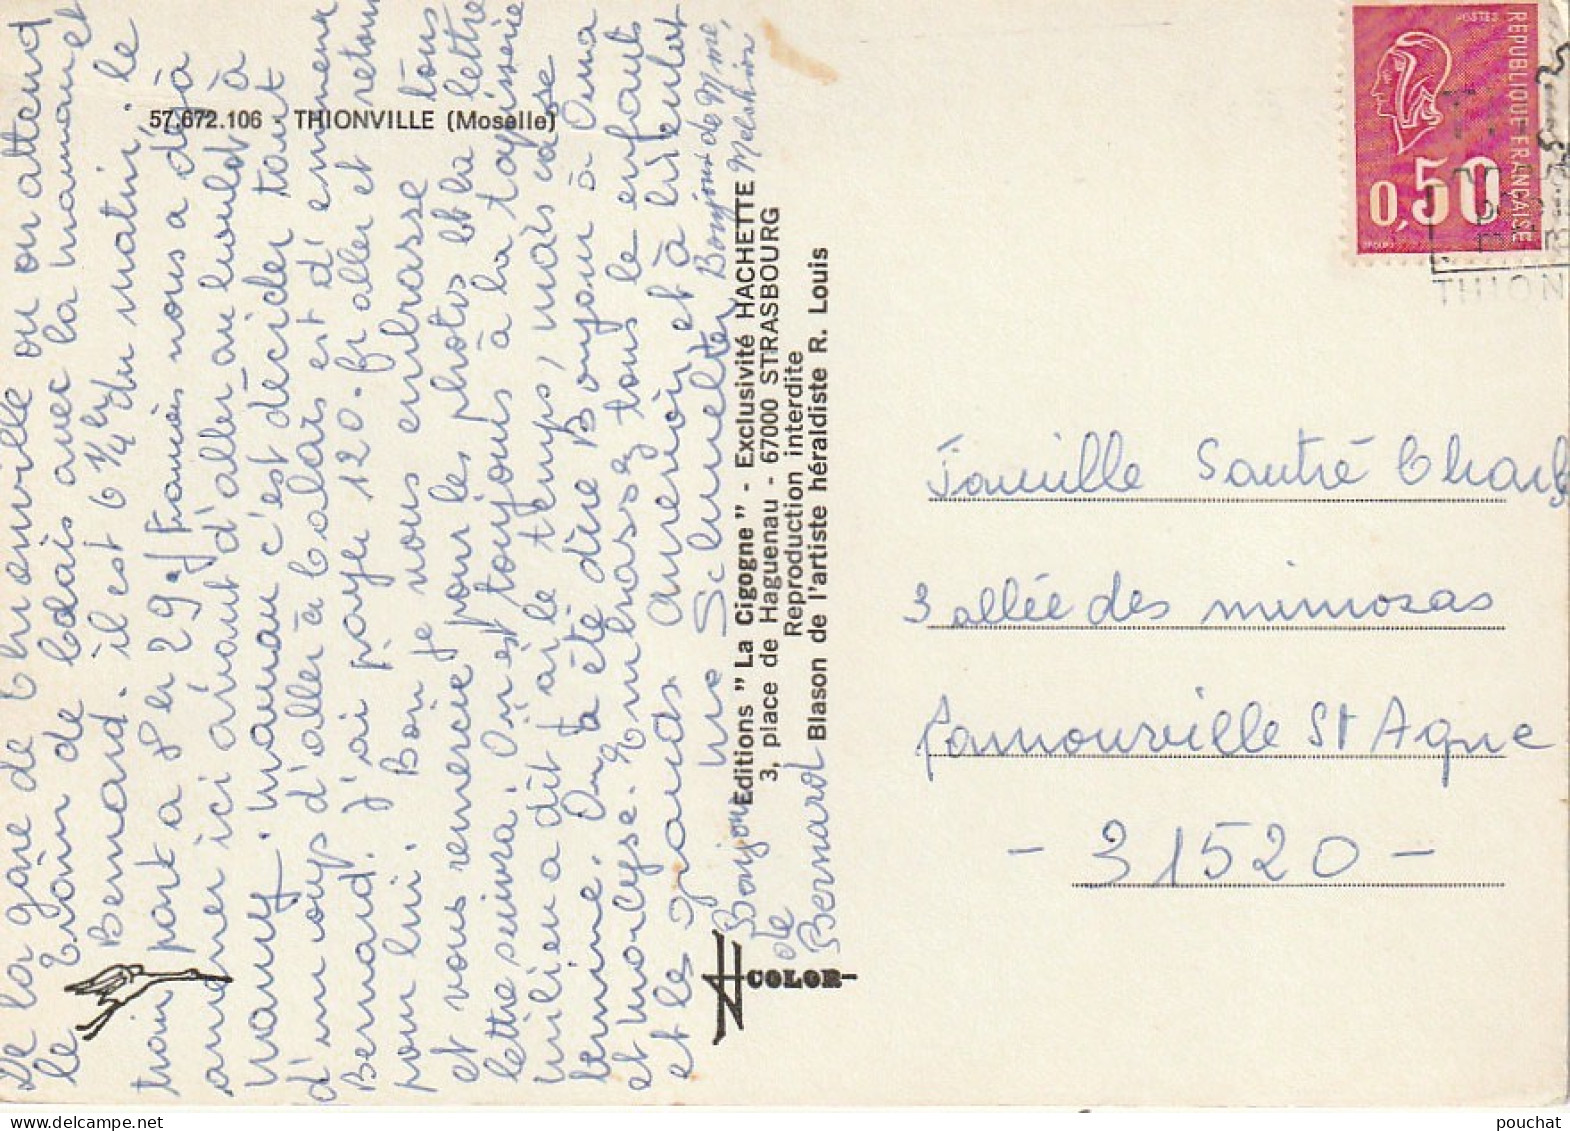 De la gare de Thionville ou on attend
le train de Calais avec la maman et
Bernard. il est 6 1/4 hr du matin. le
train part a 8 hr 29. Francis nous a déjà
amener ici avant d'aller au boulot à
Nancy. maman c'est décider tout
d'un coup d'aller à Calais et d'emmener
Bernard. J'ai payer 120. fr aller et retour
pour lui. Bon je nous embrasse tous
et vous remercie pour les photos et la lettre
lettre suivra. On est toujours à la tapisserie
milieu a dit par le temps, mais ca se
termine. On a été dire Bonjour à Oma
et Molyse. Embrassez tous le enfants
et les grands. Aurevoir et à bientot
une Schmelter
Bonjour de Mme Melchior
Bonjour
de
Bernard
57.672.106 - THIONVILLE (Moselle)
Editions "La Cigogne" - Exclusivité HACHETTE
3, place de Haguenau - 67000 STRASBOURG
Reproduction interdite
Blason de l'artiste héraldiste R. Louis
COLOR
POSTES
REPUBLIQUE FRANÇAISE
0,50
THION
Famille Sautré Charl
3 allée des mimosas
Ramonville St Agne
- 31520 -
pouchat